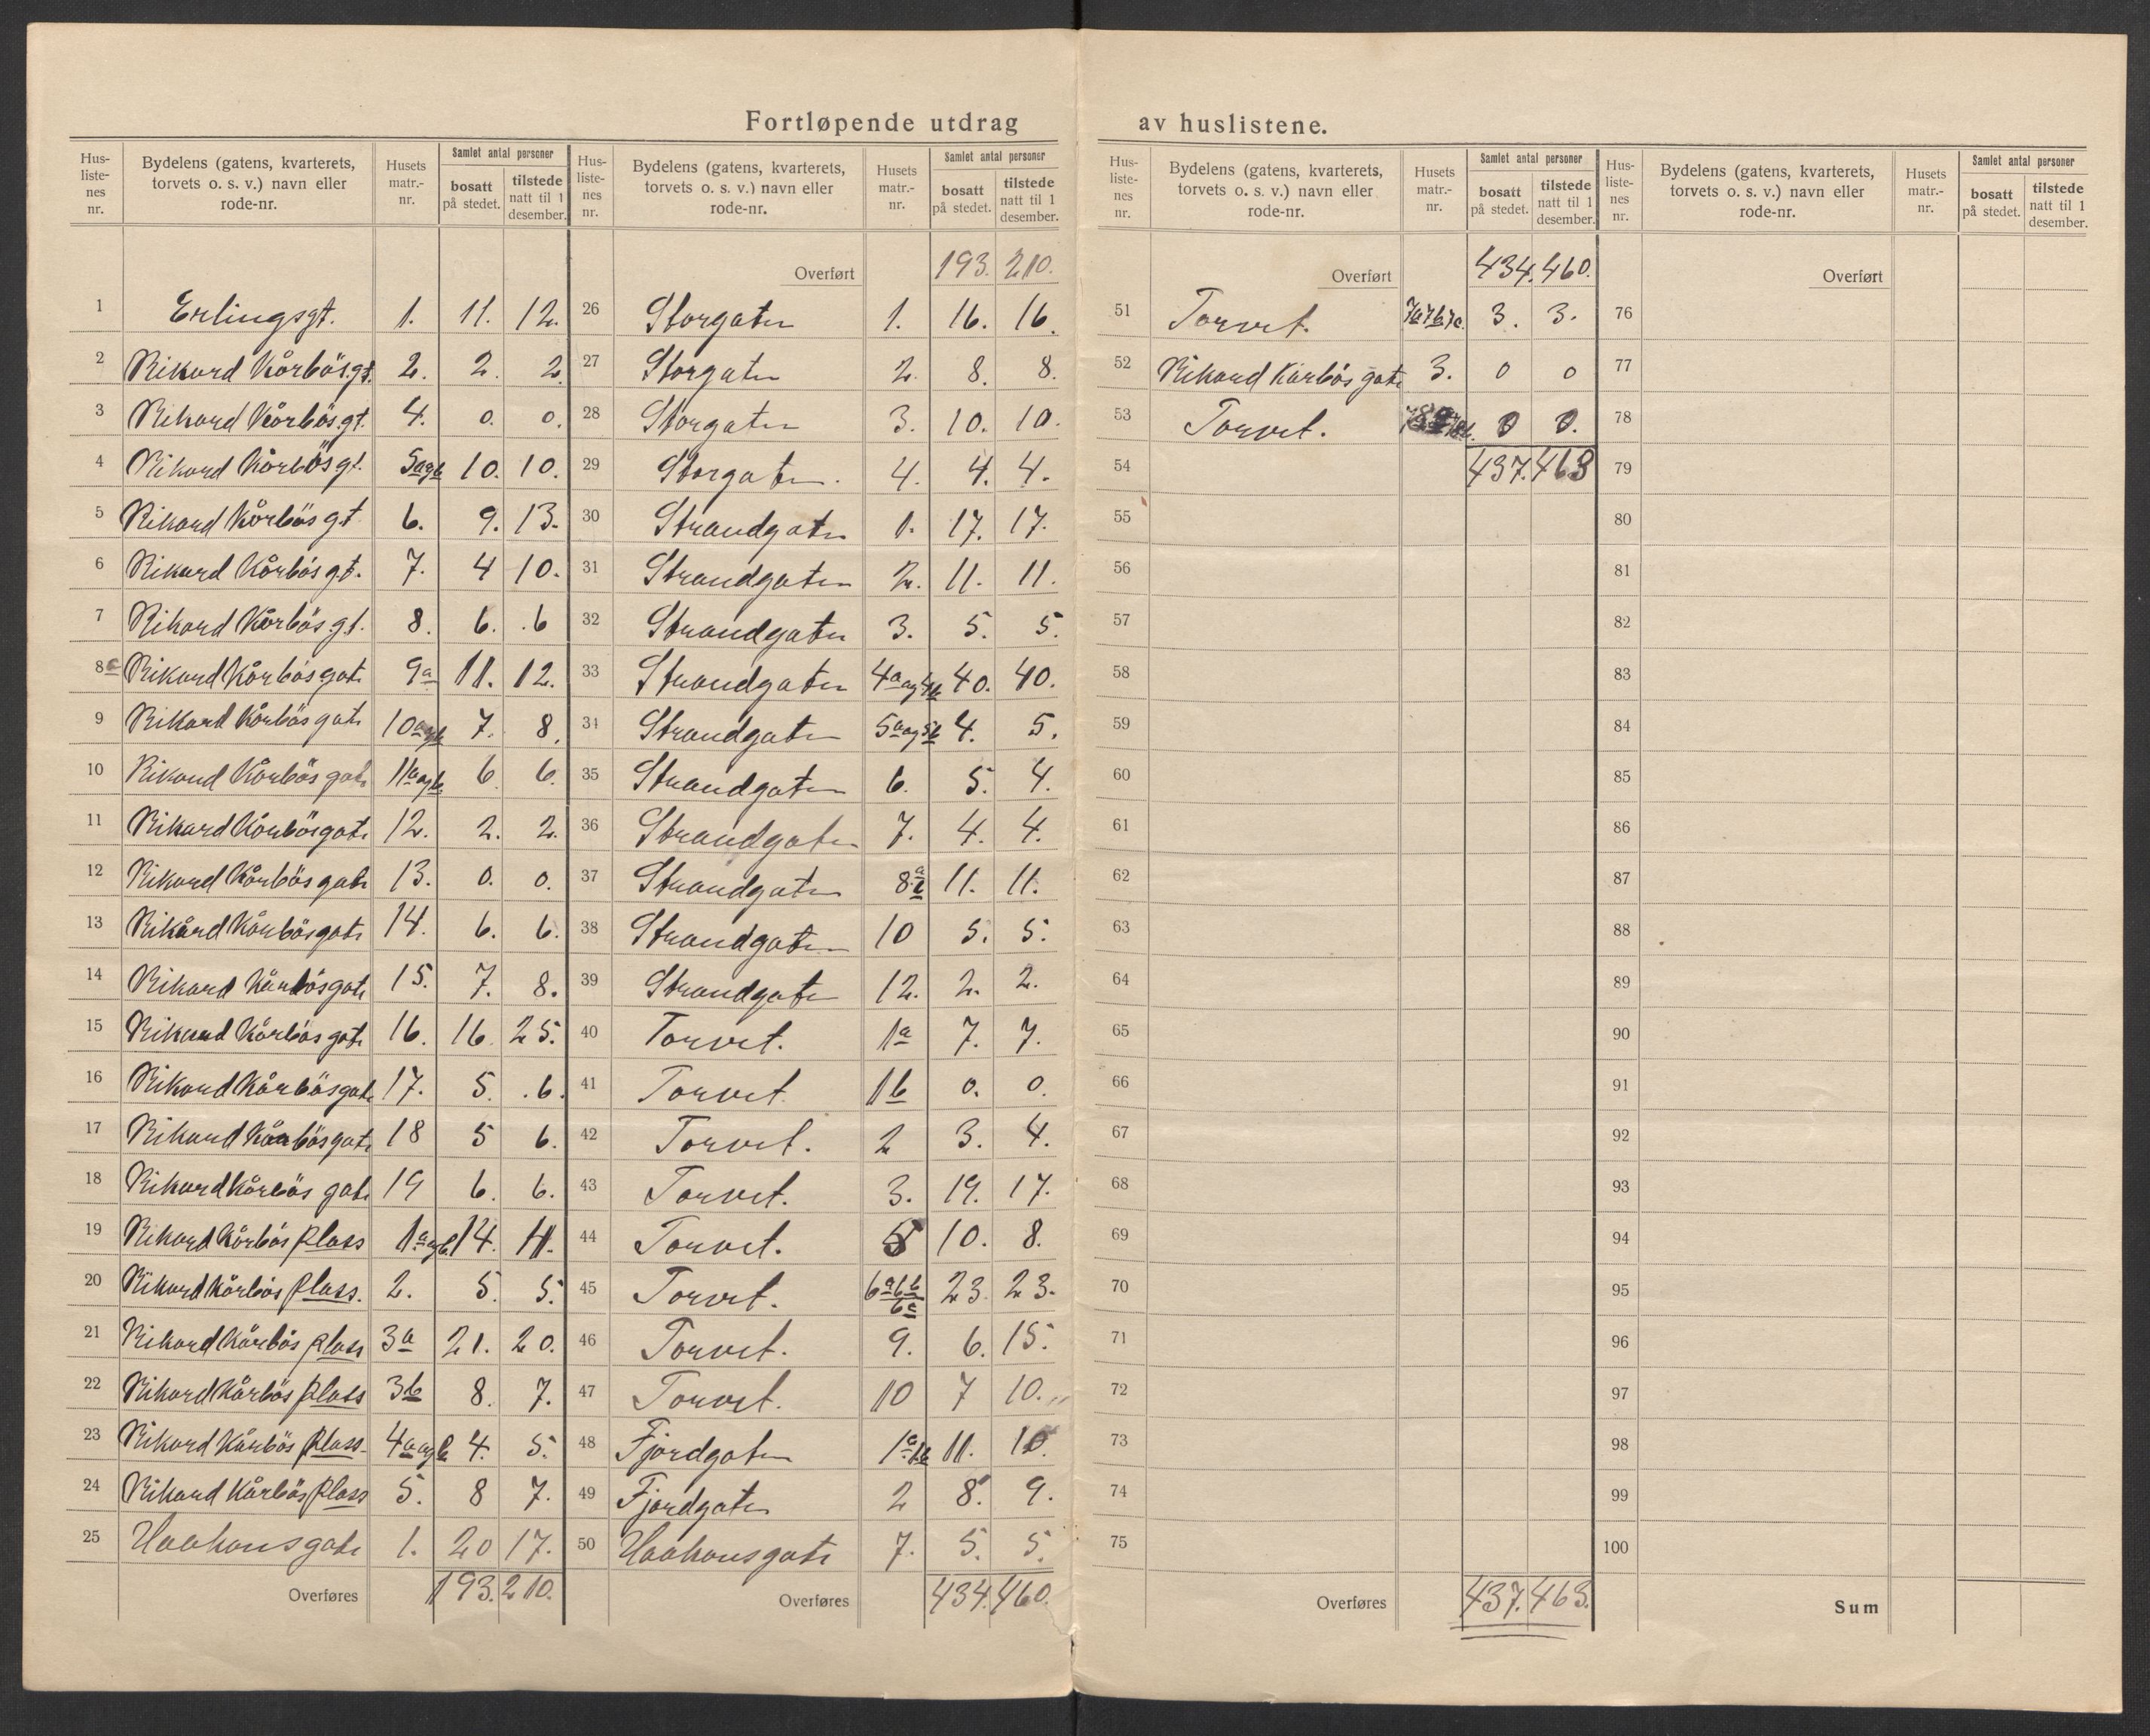 Fortløpende utdrag av huslistene.
Hus-liste-nes nr. | Bydelens (gatens, kvarterets, torvets o. s. v.) navn eller rode-nr. | Husets matr.-nr. | Samlet antal personer bosatt på stedet. | tilstede natt til 1 desember.
1 Erlingsgt. 1. 11. 12.
2 Rikard Kårbøs gt. 2. 2. 2.
3 Rikard Kårbös gt. 4. 0. 0.
4 Rikard Kårbös gt. 5a og b 10. 10.
5 Rikard Kårbös gt 6. 9. 13.
6 Rikard Kårbös gt. 7. 4 10.
7 Rikard Kårbös gt. 8. 6. 6
8 Rikard Kårbös gate 9a 11. 12.
9 Rikard Kårbös gate 10a og b 7. 8.
10 Rikard Kårbös gate 11a og b 6 6.
11 Rikard Kårbös gate 12. 2. 2.
12 Rikard Kårbös gate 13. 0. 0.
13 Rikard Kårbös gate 14. 6. 6.
14 Rikard Kårbös gate 15. 7. 8.
15 Rikard Kårbös gate 16. 16. 25.
16 Rikard Kårbös gate 17. 5. 6.
17 Rikard Kårbös gate 18 5 6.
18 Rikard Kårbös gate 19 6. 6.
19 Rikard Kårbös plass 1a og b 14. 11.
20 Rikard Kårbös plass. 2. 5. 5.
21 Rikard Kårbös plass 3a 21. 20.
22 Rikard Kårbös plass 3b 8. 7.
23 Rikard Kårbös plass 4a og b 4. 5.
24 Rikard Kårbös plass 5. 8 7.
25 Haakonsgate 1. 20 17.
Overføres 193. 210.
Hus-liste-nes nr. | Bydelens (gatens, kvarterets, torvets o. s. v.) navn eller rode-nr. | Husets matr.-nr. | Samlet antal personer bosatt på stedet. | tilstede natt til 1 desember.
Overført 193. 210.
26 Storgaten 1. 16. 16.
27 Storgaten 2. 8. 8.
28 Storgaten 3. 10. 10.
29 Storgaten. 4. 4. 4.
30 Strandgaten 1. 17. 17.
31 Strandgaten 2. 11. 11.
32 Strandgaten 3. 5. 5.
33 Strandgaten 4a og 4b 40. 40.
34 Strandgaten 5a og 5b 4. 5.
35 Strandgaten 6. 5. 4.
36 Strandgaten 7. 4. 4.
37 Strandgaten 8 a b 11. 11.
38 Strandgaten 10 5. 5.
39 Strandgaten 12. 2. 2.
40 Torvet. 1a 7. 7.
41 Torvet 1b 0. 0.
42 Torvet. 2 3. 4.
43 Torvet. 3. 19. 17.
44 Torvet. 5 10. 8.
45 Torvet. 6a 6b 6c 23. 23.
46 Torvet. 9. 6. 15.
47 Torvet. 10 7 10.
48 Fjordgaten 1a 1b 11. 10.
49 Fjordgaten 2 8. 9.
50 Haakonsgate 7. 5. 5.
Overføres 434. 460.
Hus-liste-nes nr. | Bydelens (gatens, kvarterets, torvets o. s. v.) navn eller rode-nr. | Husets matr.-nr. | Samlet antal personer bosatt på stedet. | tilstede natt til 1 desember.
Overført 434. 460.
51 Torvet. 7a 7b 7c. 3. 3.
52 Rikard Kårbös gate 3. 0 0
53 Torvet. 0 0.
54 437. 463
55
56
57
58
59
60
61
62
63
64
65
66
67
68
69
70
71
72
73
74
75
Overføres 437. 463.
Hus-liste-nes nr. | Bydelens (gatens, kvarterets, torvets o. s. v.) navn eller rode-nr. | Husets matr.-nr. | Samlet antal personer bosatt på stedet. | tilstede natt til 1 desember.
Overført
76
77
78
79
80
81
82
83
84
85
86
87
88
89
90
91
92
93
94
95
96
97
98
99
100
Sum